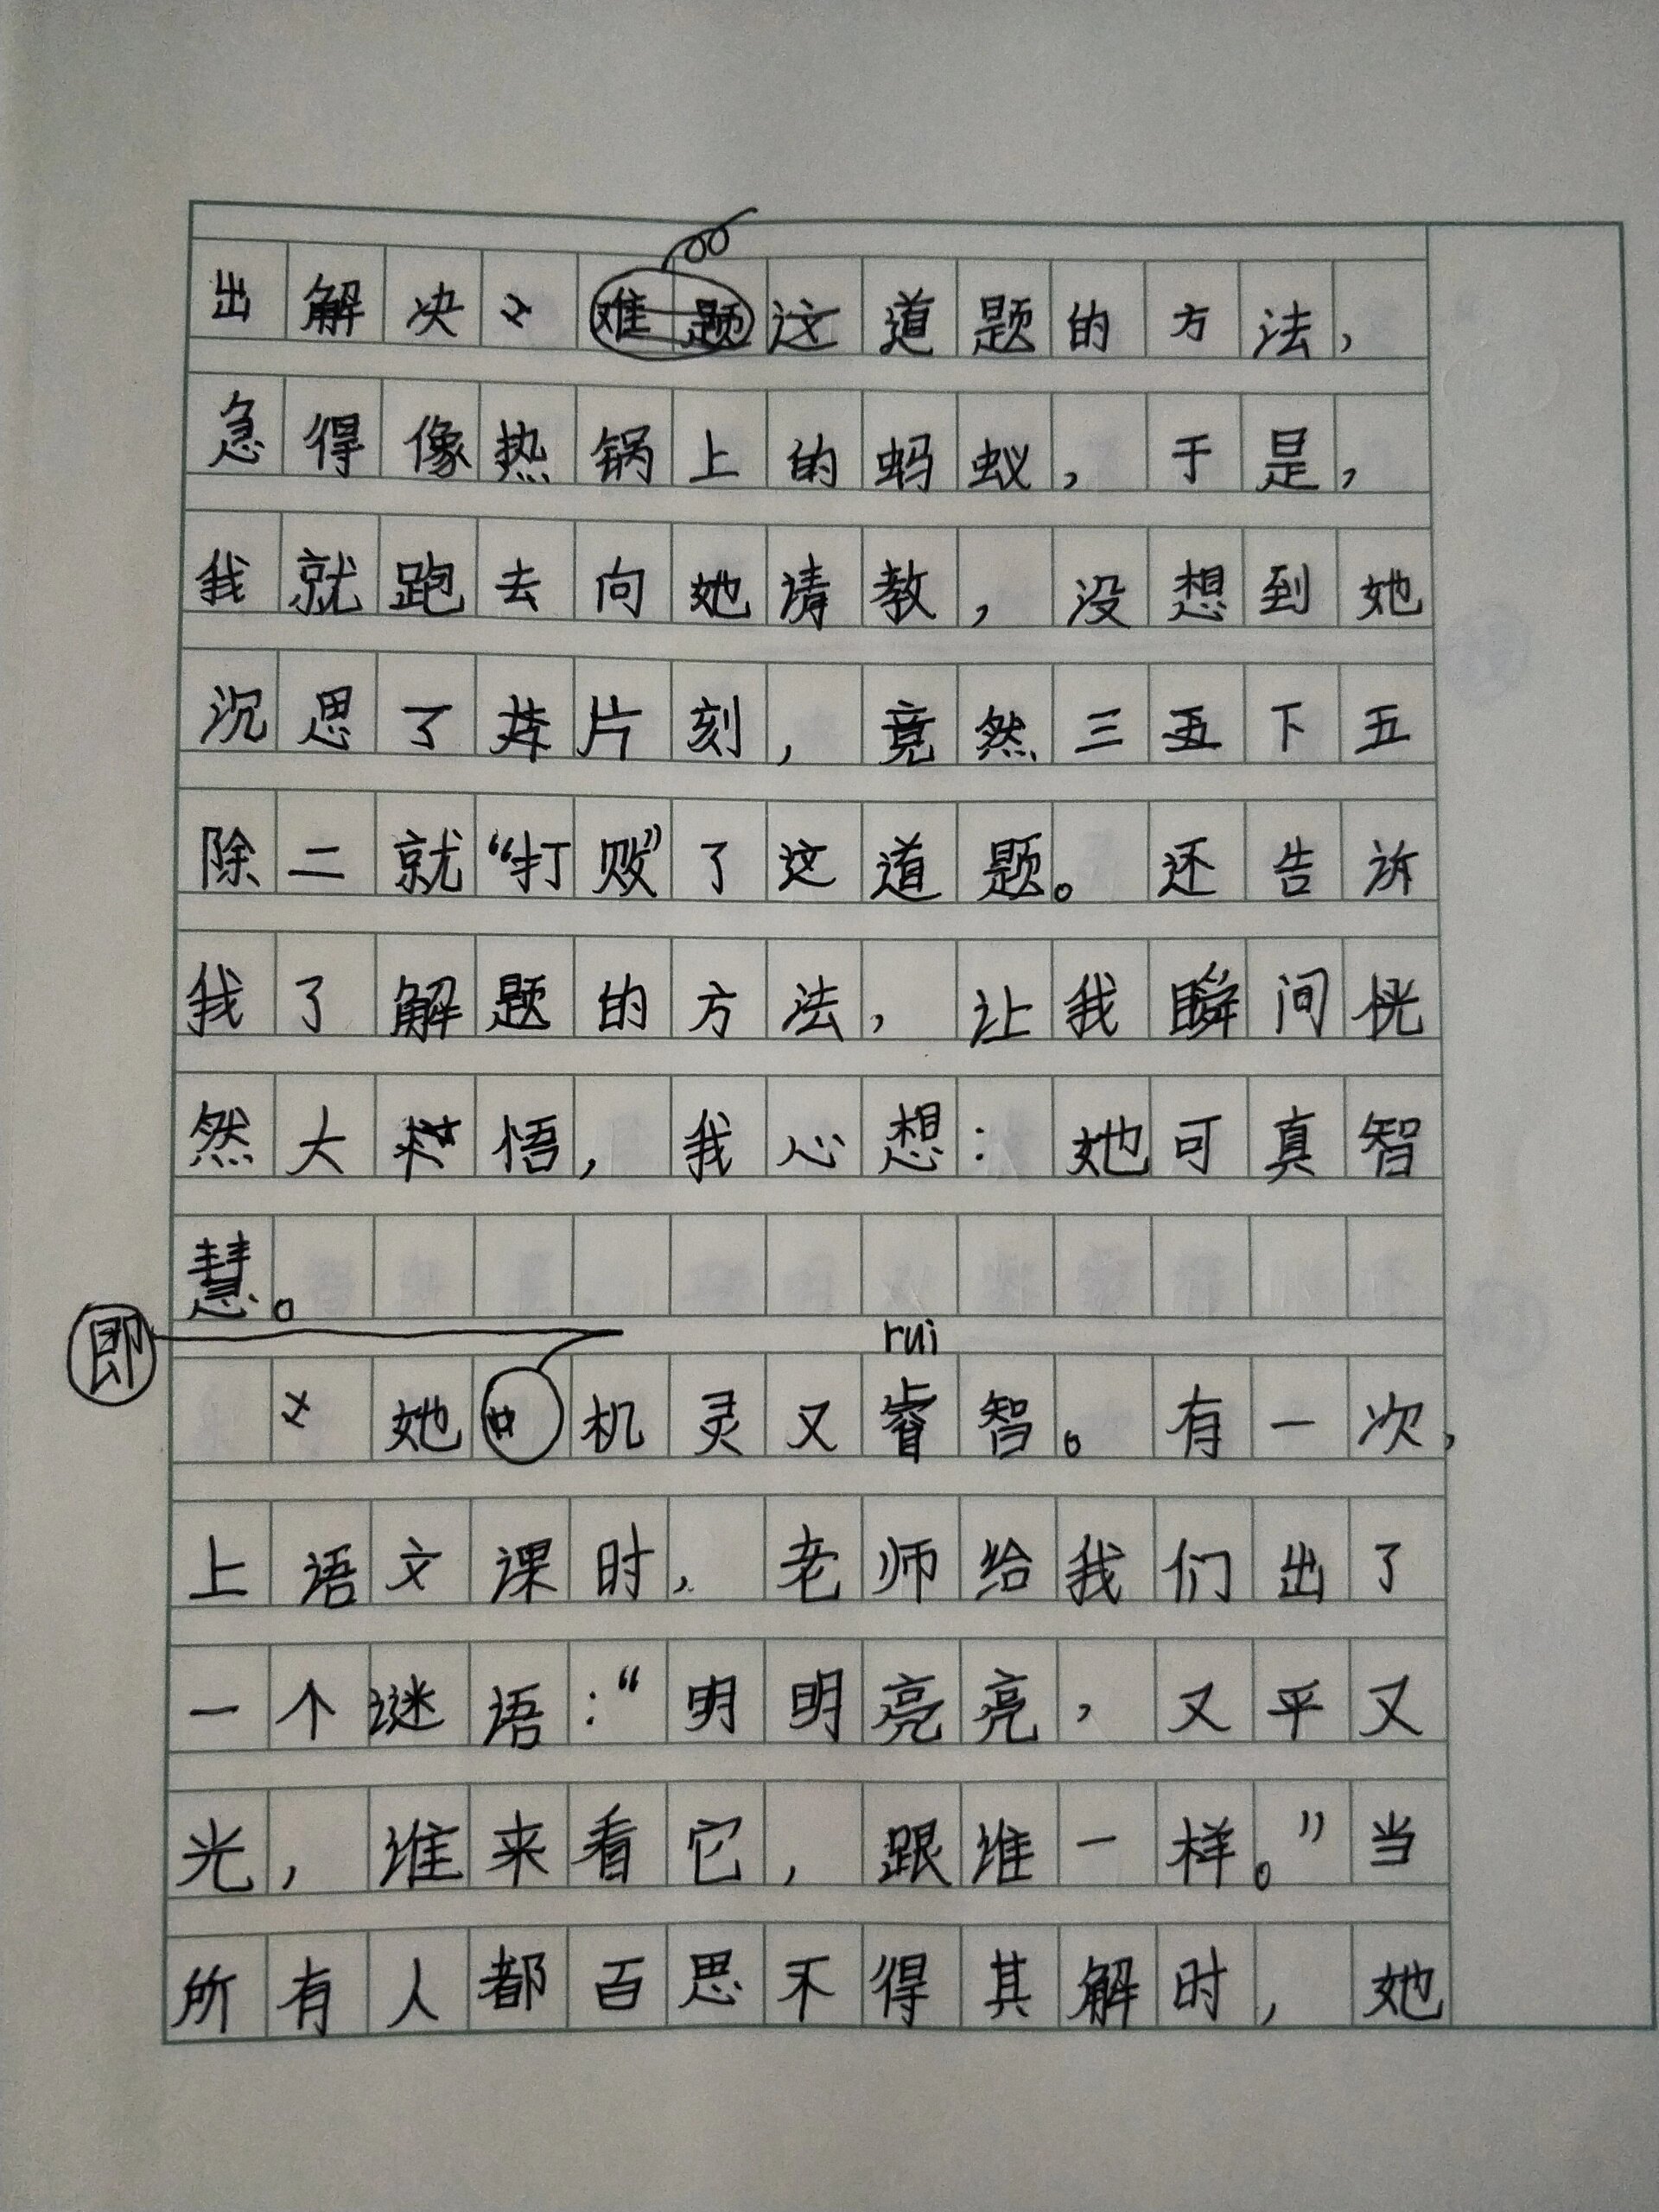 出解决难题这道题的方法，
急得像热锅上的蚂蚁，于是，
我就跑去向她请教，没想到她
沉思了片刻，竟然三五下五
除二就“打败”了这道题。还告诉
我了解题的方法，让我瞬间恍
然大悟，我心想：她可真智
慧。
即
rui
她机灵又睿智。有一次，
上语文课时，老师给我们出了
一个谜语：“明明亮亮，又平又
光，谁来看它，跟谁一样。”当
所有人都百思不得其解时，她